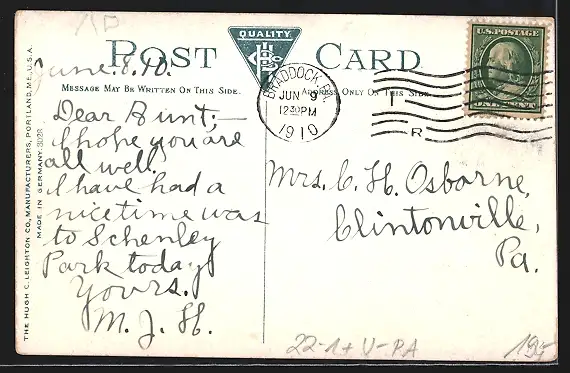 POST CARD
QUALITY
MESSAGE MAY BE WRITTEN ON THIS SIDE.
ADDRESS ONLY ON THIS SIDE.
June.8.10.
Dear Aunt;—
I hope you are
all well.
I have had a
nice time was
to Schenley
Park today
Yours.
M. J. H.
BRADDOCK, PA.
JUN 9
1230PM
1910
R
U.S. POSTAGE
ONE CENT
Mrs. C. H. Osborne,
Clintonville,
Pa.
THE HUGH C. LEIGHTON CO., MANUFACTURERS, PORTLAND, ME., U.S.A.
MADE IN GERMANY.
22-1+ V-PA